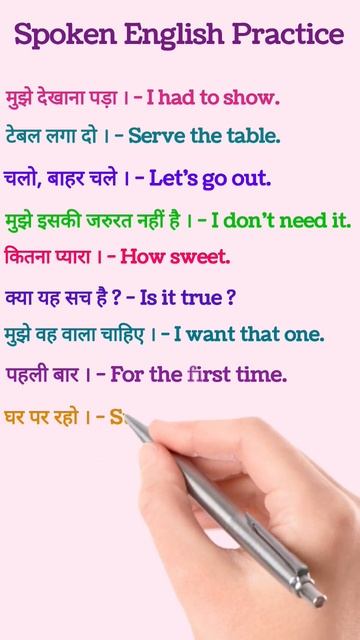 Spoken English Practice
मुझे देखाना पड़ा । - I had to show.
टेबल लगा दो । - Serve the table.
चलो, बाहर चले । - Let's go out.
मुझे इसकी जरुरत नहीं है । - I don't need it.
कितना प्यारा । - How sweet.
क्या यह सच है ? - Is it true ?
मुझे वह वाला चाहिए । - I want that one.
पहली बार । - For the first time.
घर पर रहो । - S